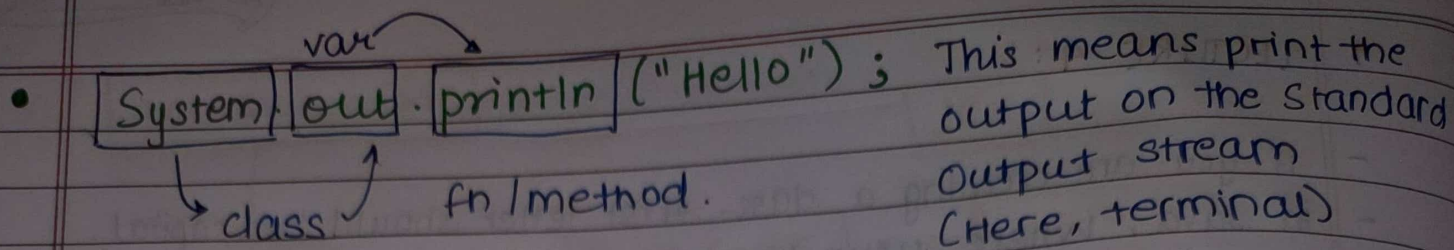 var
• System. out. println ("Hello") ; This means print the
output on the Standard
output stream
(Here, terminal)
class fn/method.